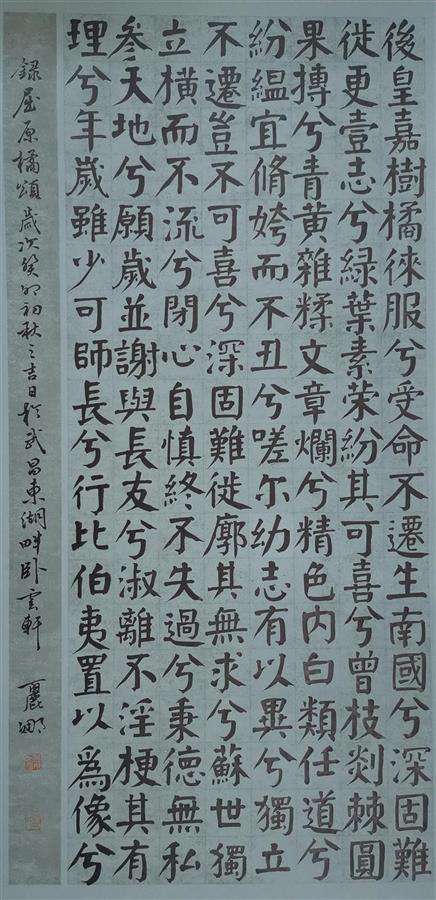 後皇嘉樹橘徠服兮受命不遷生南國兮深固難
徙更壹志兮綠葉素荣紛其可喜兮曾枝剡棘圓
果摶兮青黄雜糅文章爛兮精色内白類任道兮
紛緼宜脩姱而不丑兮嗟尓幼志有以異兮獨立
不遷豈不可喜兮深固難徙廓其無求兮蘇世獨
立橫而不流兮閉心自慎終不失過兮秉德無私
叅天地兮願歲並謝與長友兮淑離不淫梗其有
理兮年歲雖少可師長兮行比伯夷置以為像兮
録屈原橘頌歲次癸卯初秋之吉日於武昌東湖畔卧雲軒 麗娜